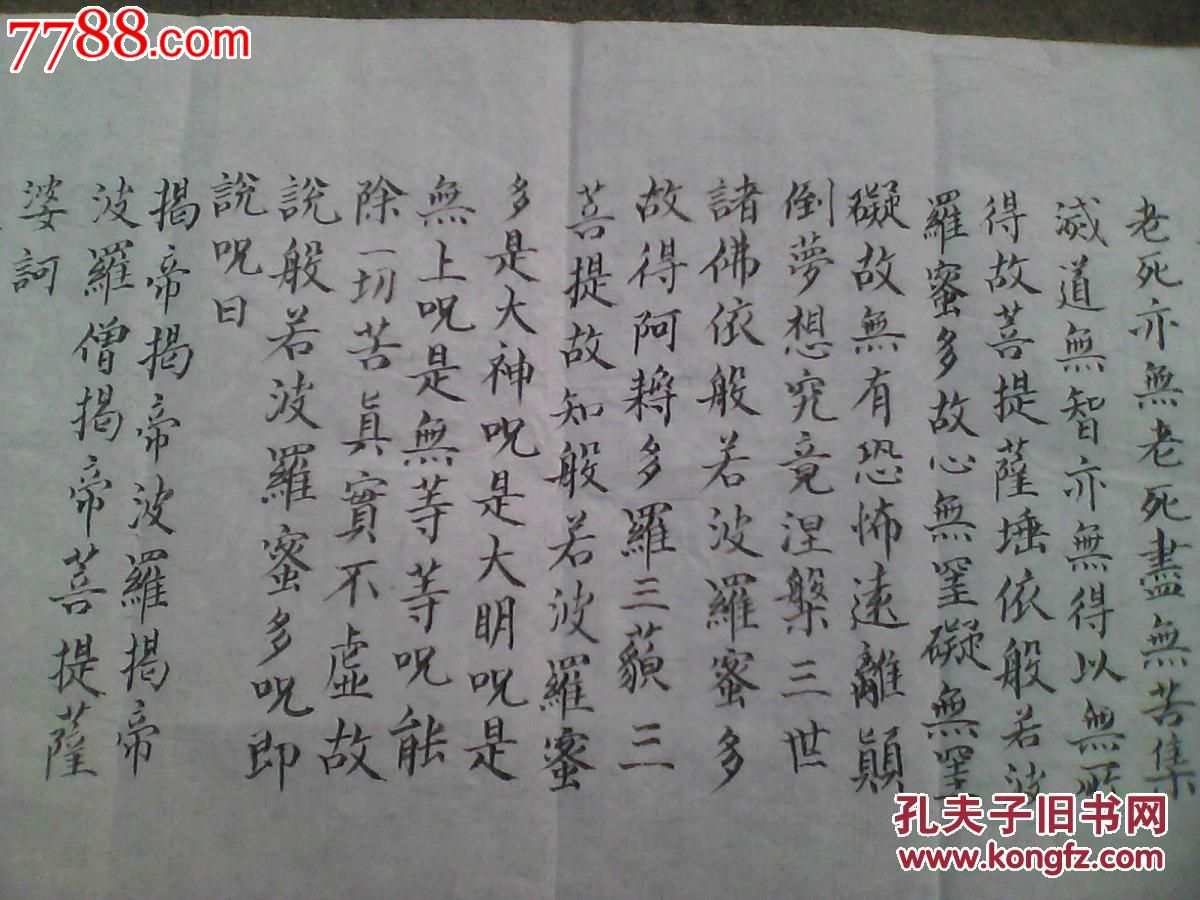 7788.com
老死亦無老死盡無苦集
滅道無智亦無得以無所
得故菩提薩埵依般若波
羅蜜多故心無罣礙無罣
礙故無有恐怖遠離顛
倒夢想究竟涅槃三世
諸佛依般若波羅蜜多
故得阿耨多羅三藐三
菩提故知般若波羅蜜
多是大神呪是大明呪是
無上呪是無等等呪能
除一切苦眞實不虛故
說般若波羅蜜多呪即
說呪曰
揭帝揭帝波羅揭帝
波羅僧揭帝菩提薩
婆訶
孔夫子旧书网
www.kongfz.com